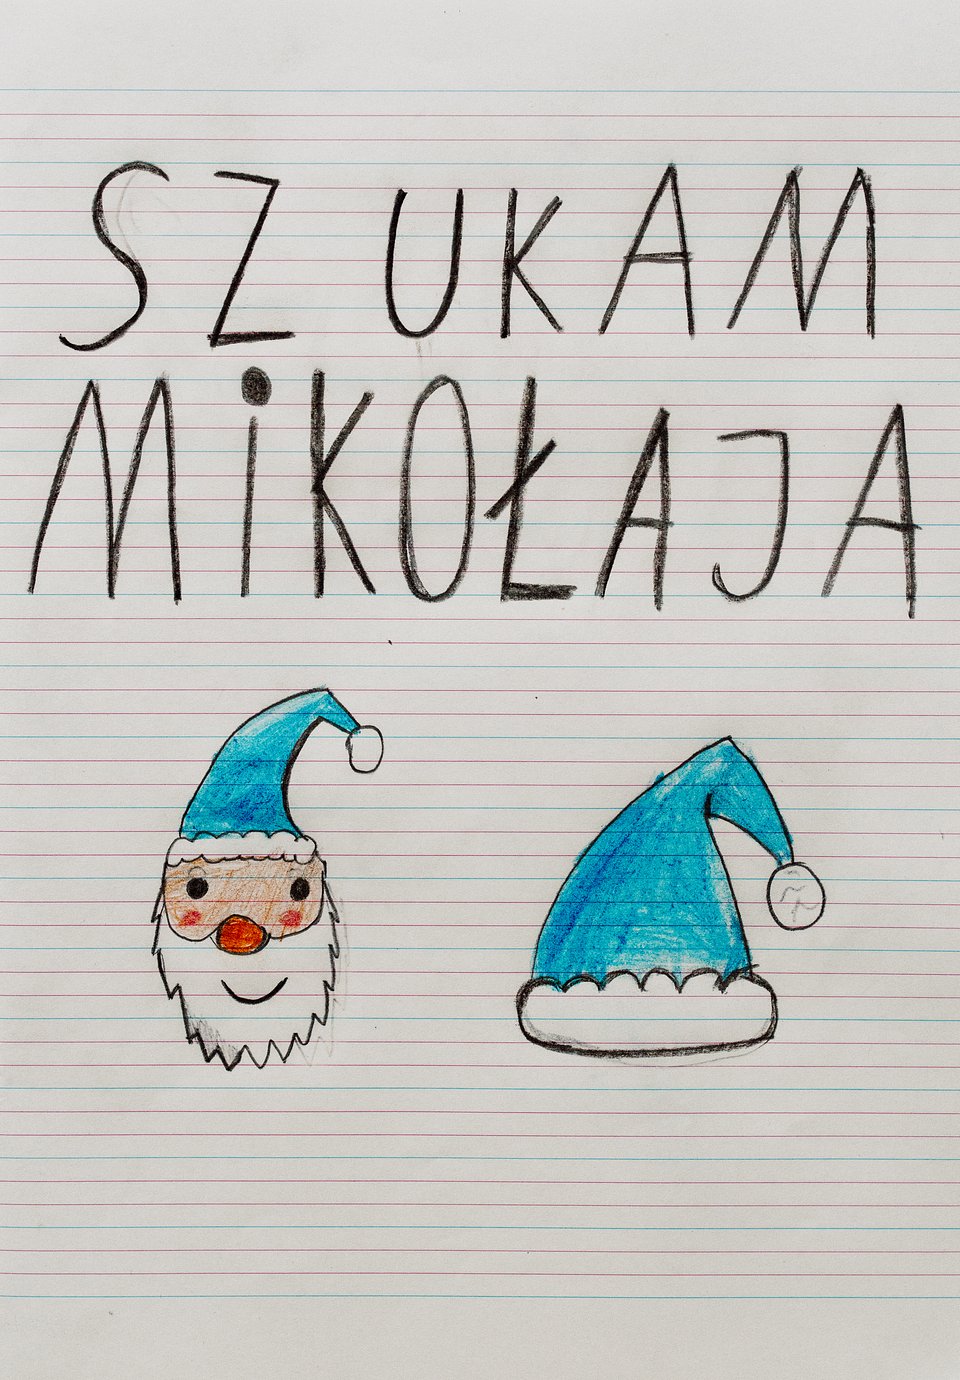 SZUKAM
MiKOŁAJA